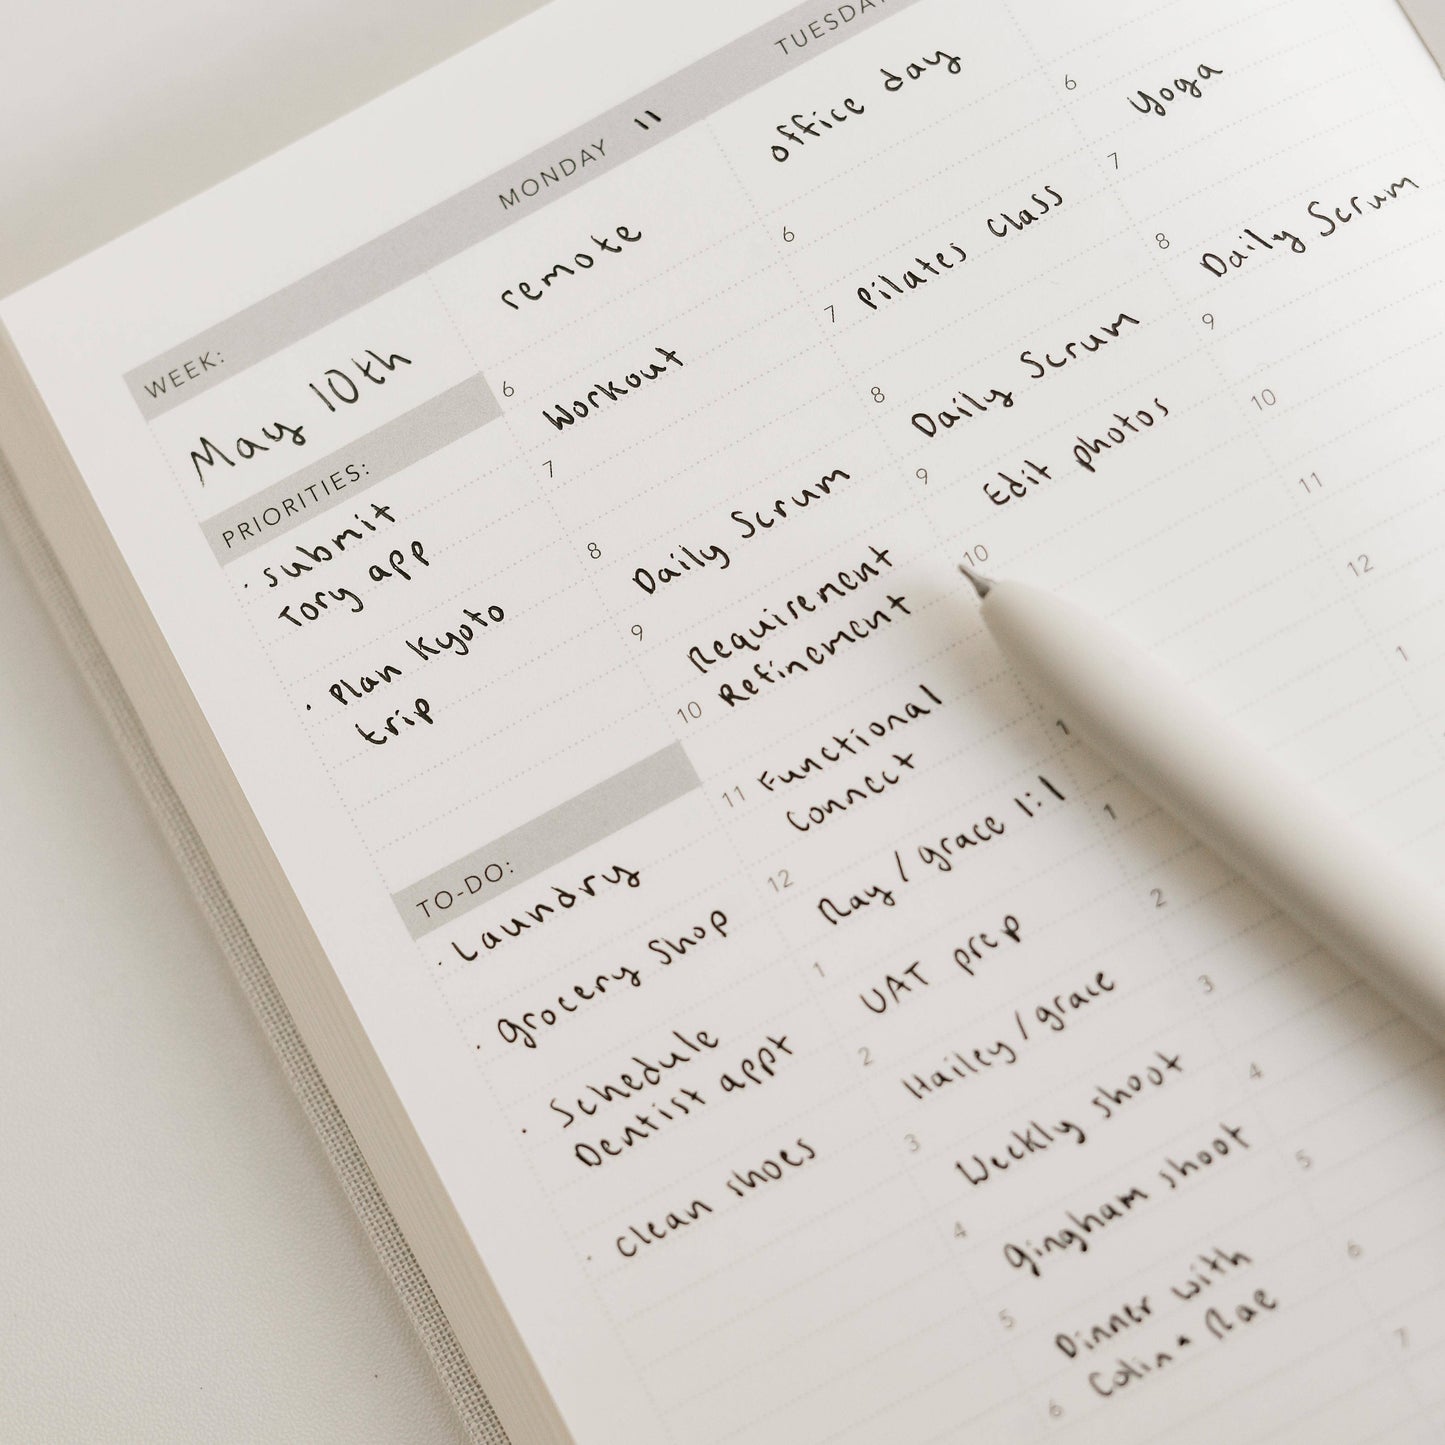 WEEK:
May 10th
PRIORITIES:
· submit
Tory app
· Plan Kyoto
trip
TO-DO:
· Laundry
· grocery shop
· Schedule
Dentist appt
· clean shoes
MONDAY 11
remote
6 Workout
7
8 Daily Scrum
9 Requirement
Refinement
10
11 Functional
Connect
12 Ray / grace 1:1
1 UAT prep
2 Hailey / grace
3 Weekly shoot
4 gingham shoot
5 Dinner with
Colin + Rae
6
TUESDAY
office day
6
7 Pilates Class
8 Daily Scrum
9 Edit photos
10
1
1
2
3
4
5
6
7
6 Yoga
7
8 Daily Scrum
9
10
11
12
1